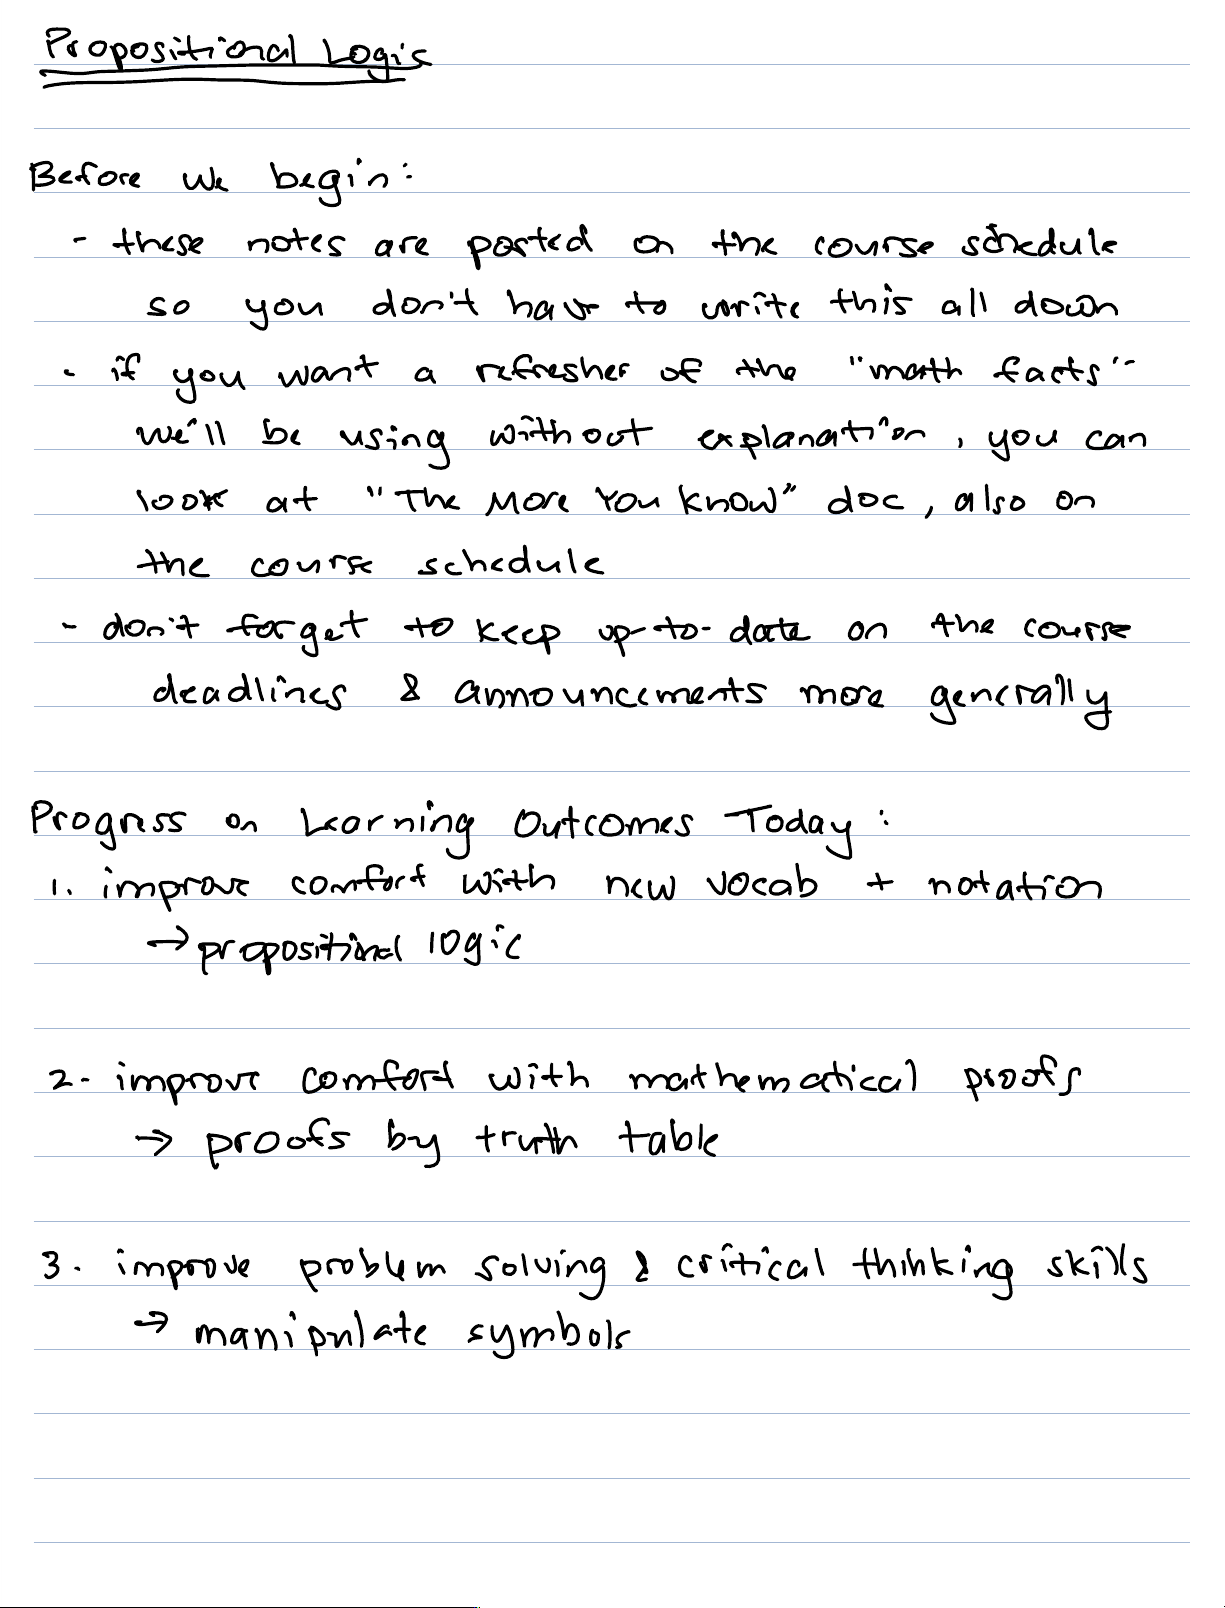 Propositional Logic
Before we begin:
- these notes are posted on the course schedule
so you don't have to write this all down
- if you want a refresher of the "math facts"
we'll be using without explanation, you can
look at "The More You Know" doc, also on
the course schedule
- don't forget to keep up-to-date on the course
deadlines & announcements more generally
Progress on Learning Outcomes Today:
1. improve comfort with new vocab + notation
→ propositional logic
2. improve comfort with mathematical proofs
→ proofs by truth table
3. improve problem solving & critical thinking skills
→ manipulate symbols